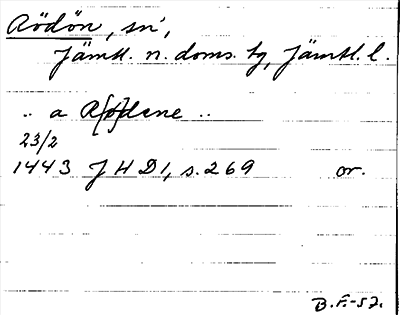 Rödön, sn,
Jämtl. n. doms. tg, Jämtl. l.
.. a R[ö]dene ..
23/2
1443 JHD1, s. 269 or.
B.F.-57.